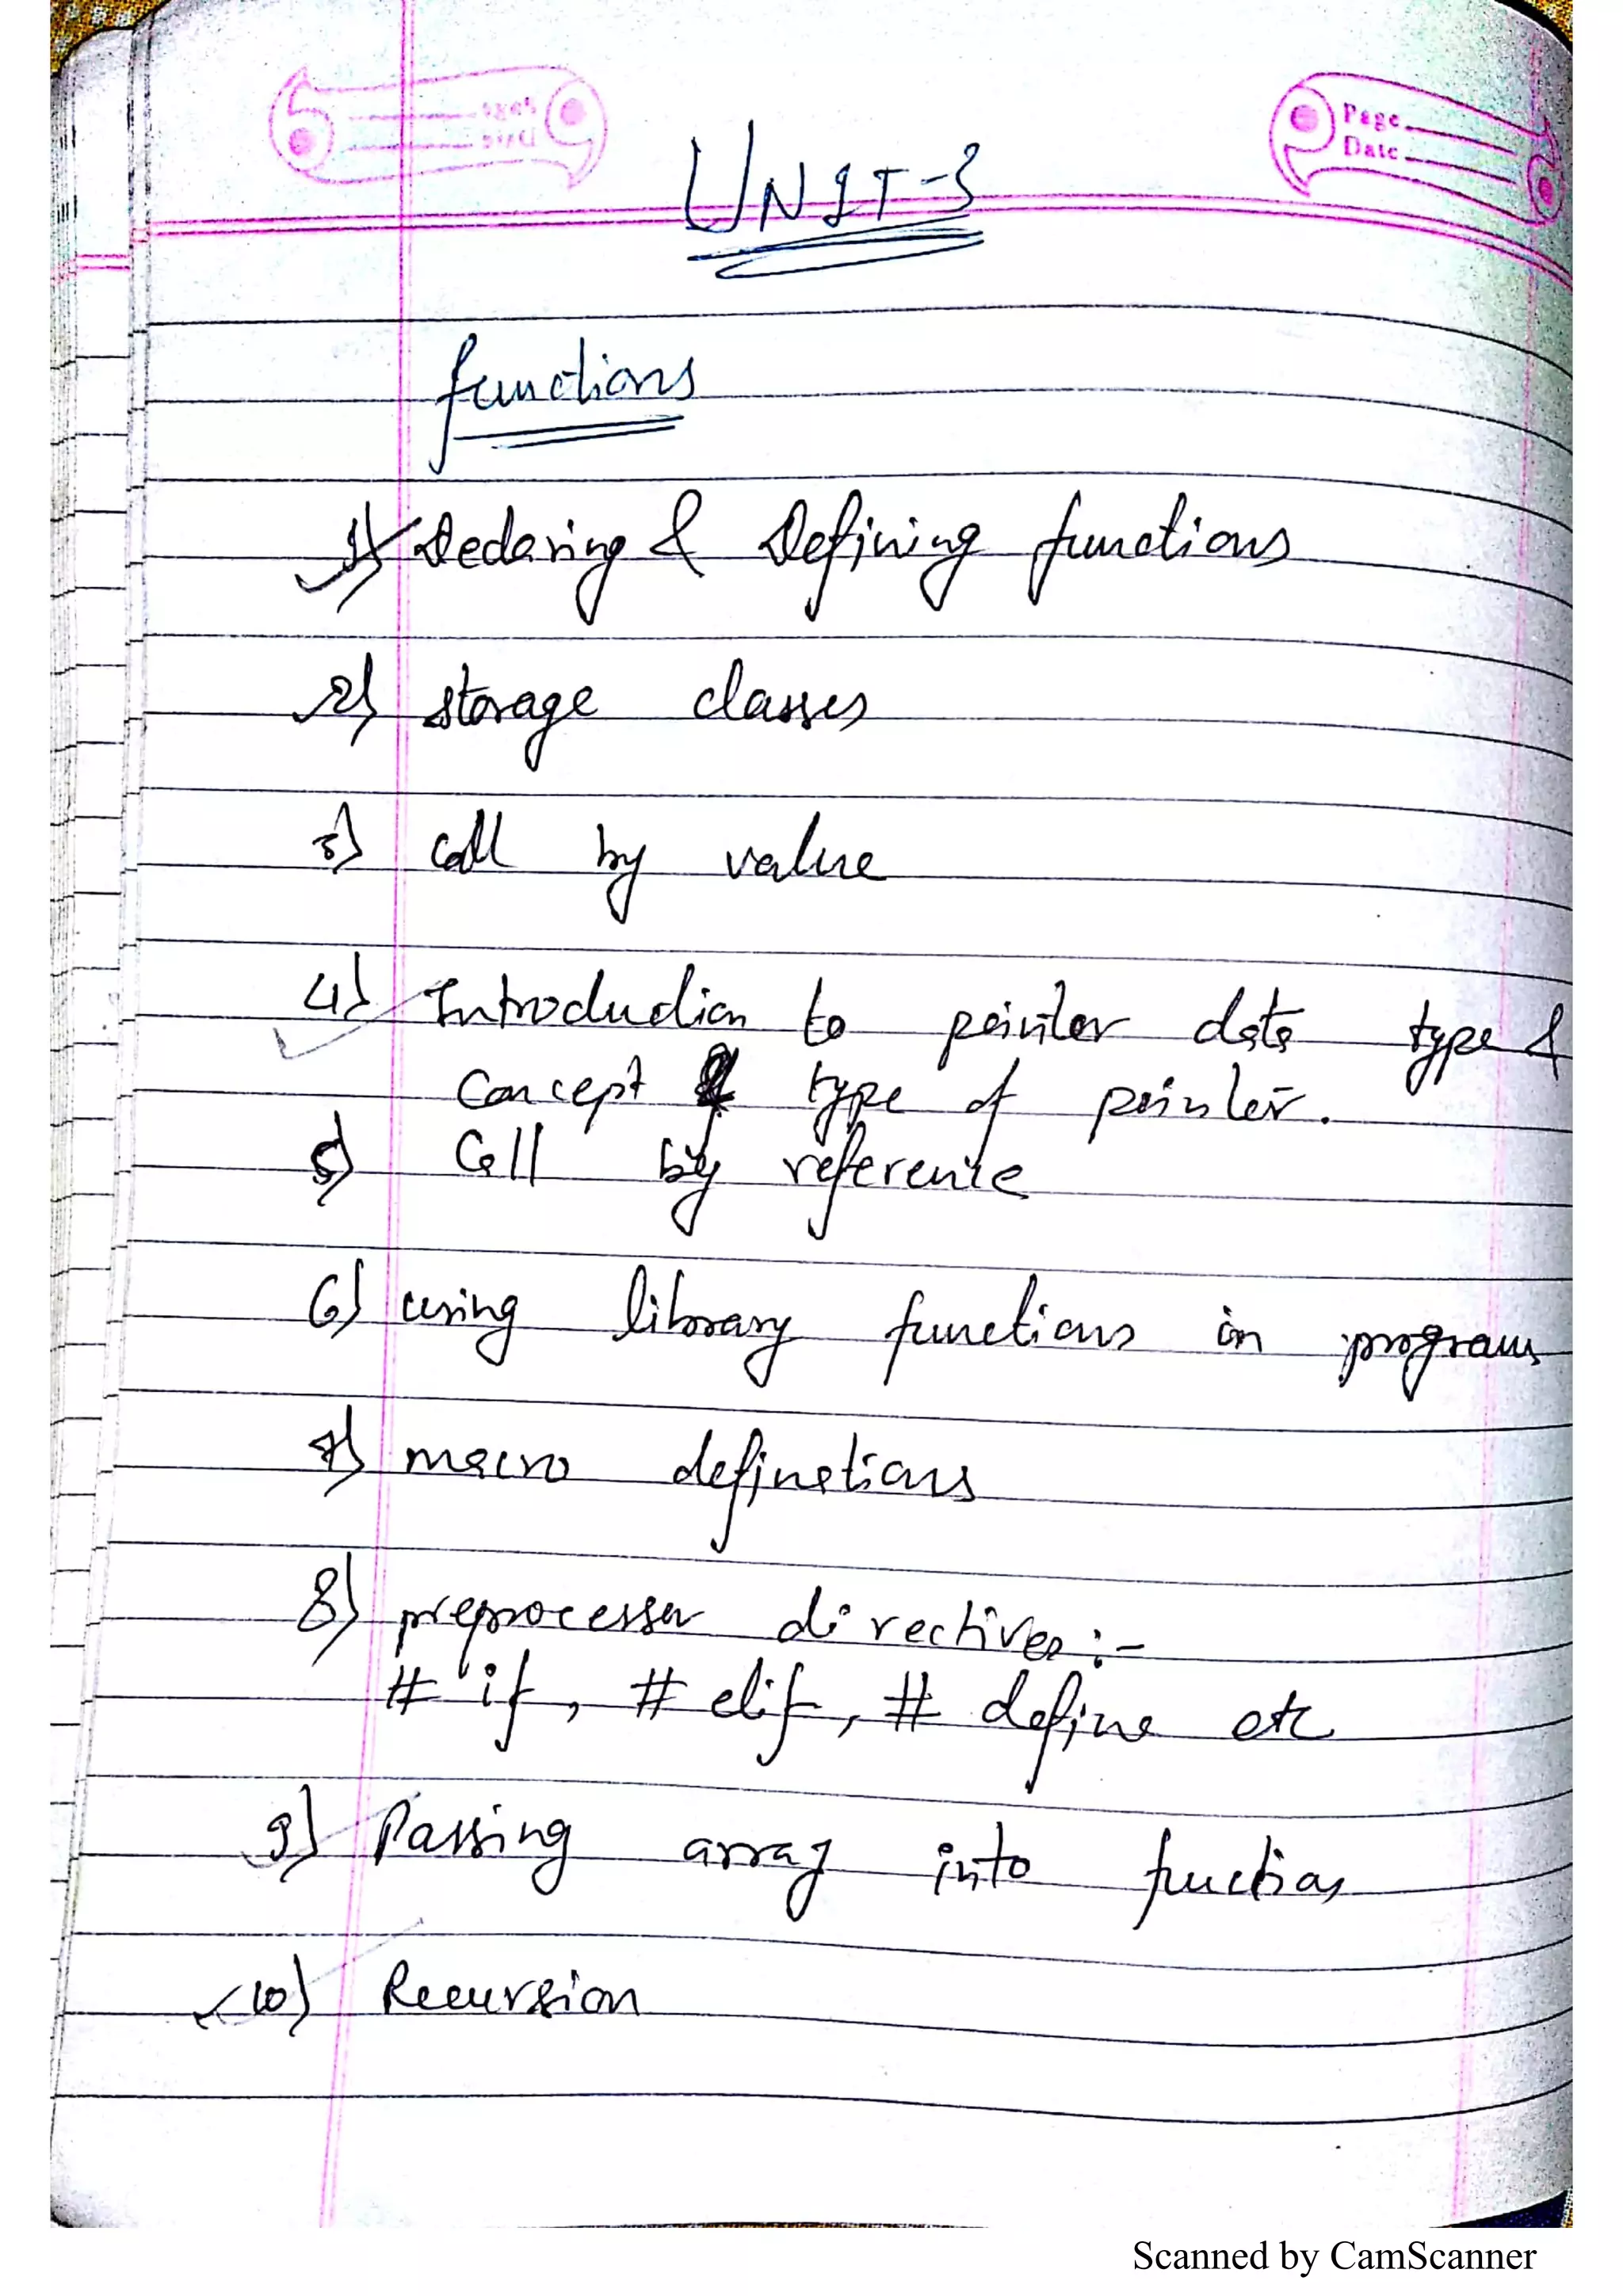 Page
Date
UNIT-3
functions
1) Declaring & Defining functions
2) storage classes
3) call by value
4) Introduction to pointer data type &
concept & type of pointer.
5) Call by reference
6) using library functions in program
7) macro definations
8) preprocesser directives :-
# if, # elif, # define etc
9) Passing array into function
10) Recursion
Scanned by CamScanner